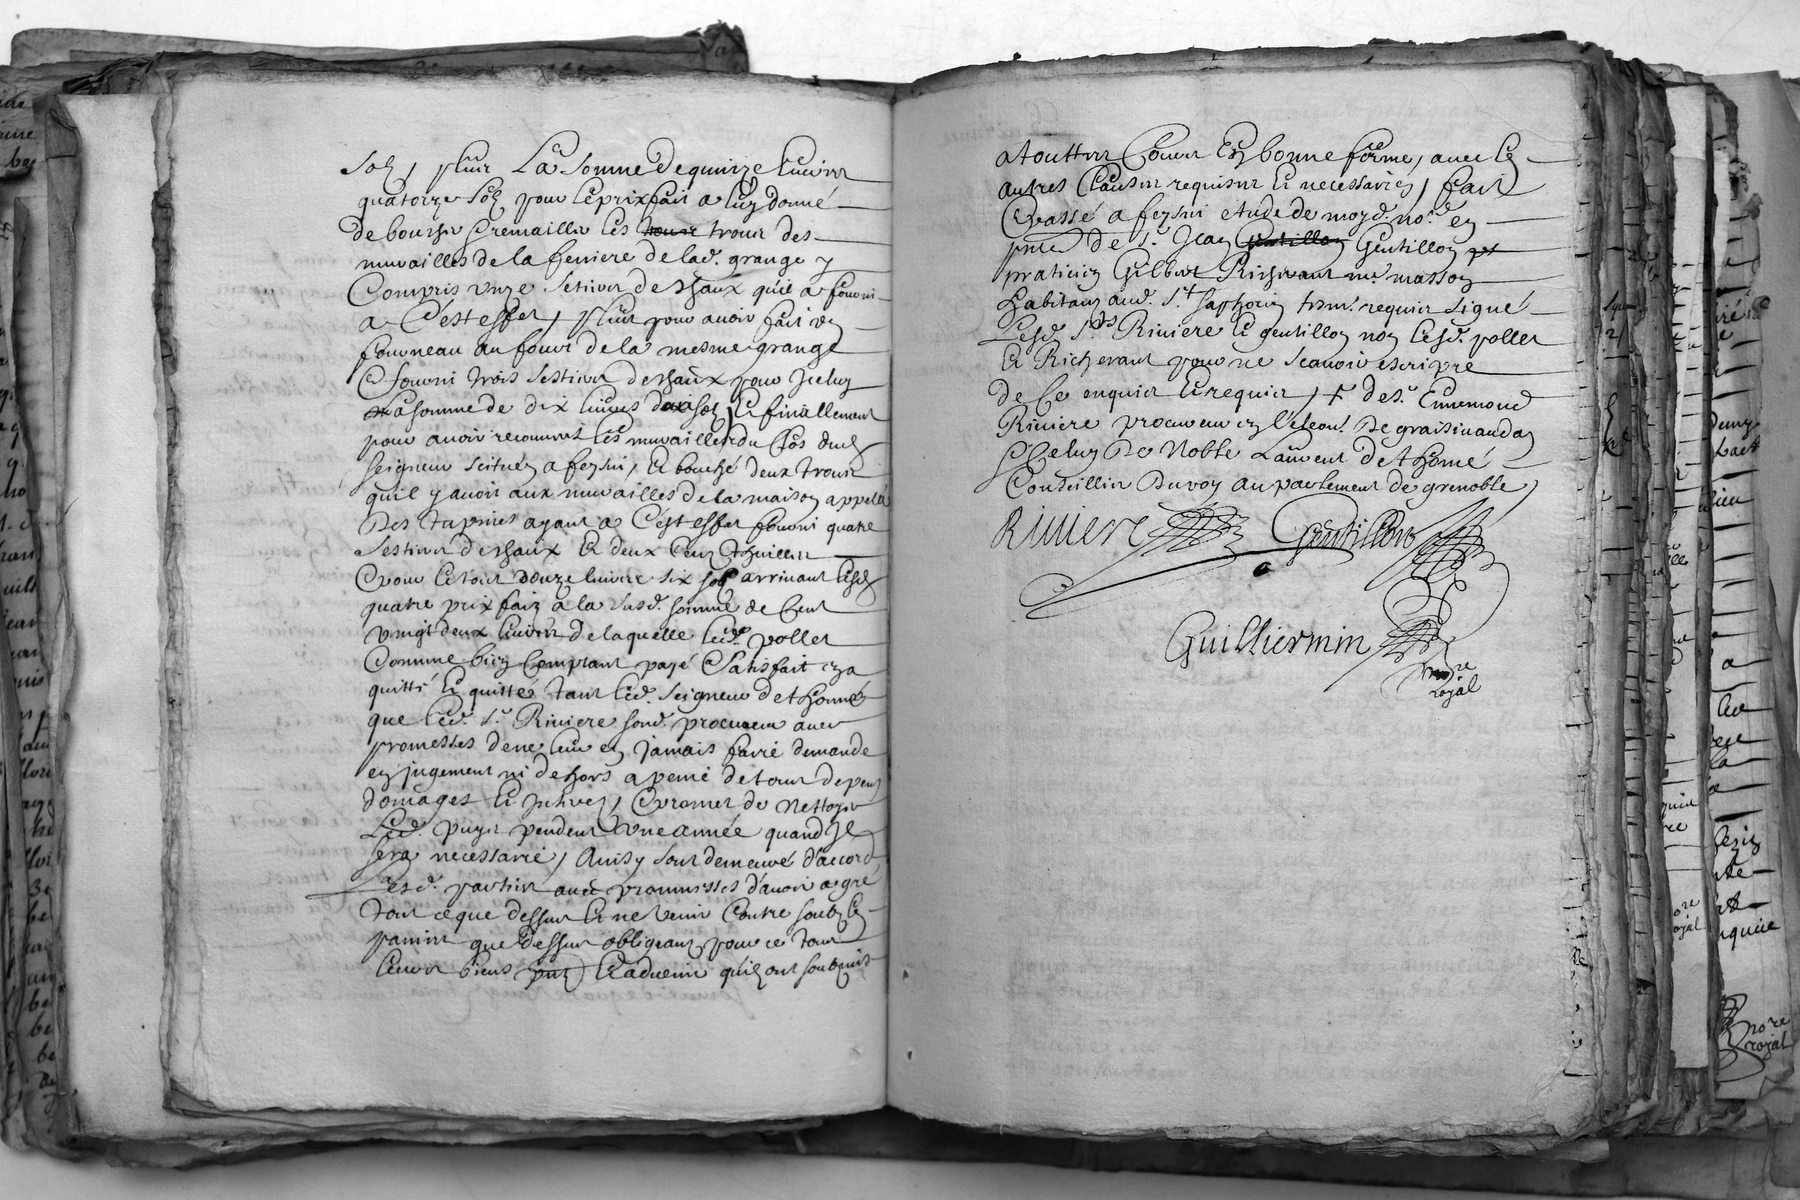 solz, plus La somme de quinze livres
quatorze solz pour le prix fait a luy donné
de boucher & remailler les trous des
murailles de la feniere de lad. grange y
Compris unze sestiers de chaux qu'il a fourni
a C'est effet, plus pour avoir fait un
fourneau au four de la mesme grange
& fourni trois sestiers de chaux pour Jceluy
la somme de dix livres solz, & finallement
pour avoir recouvert les murailles du Clos dud.
seigneur scituée a feysin, & bouché deux trous
qu'il y avoit aux murailles de la maison appelé
Des ayant a C'est effet fourni quatre
sestiers de chaux & deux Cens thuilles
& pour le tout douze livres six solz arrivant lesd.
quatre prix faiz a la susd. somme de Cent
vingt deux livres de laquelle led. pollet
Comme bien Comptant payé & satisfait en a
quitté & quitte tant led. seigneur de thomé
que led. Sr. Riviere sond. procureur avec
promesses de ne leur en jamais faire demande
en jugement ni dehors a peine de tous depens
domages & Jnterez, & promet de nettoyer
Led. puys pendent une année quand Jl
sera necessaire, Ainsy sont demeuré d'accord
Lesd. parties avec promesses d'avoir agré
tout ce que dessus & ne venir Contre soubz les
peines que dessus obligeant pour ce tous
leurs biens & advenir qu'ilz ont soubzmis
a touttes Cours En bonne forme, avec les
autres Clauses requises & necessaires, fait
& passé a feysin etude de moyd. nore. en
pnce de Sr. Jean Gentillon Gentillon
praticien Gilbert Richerant me. masson
habitans aud. St saphorin tesm. requis signé
Lesd. Srs Riviere & gentillon non lesd. pollet
& Richerant pour ne scavoir escripre
de Ce enquis & requis, + de Sr. Ennemond
Riviere procureur en l'eleon. De graisivaudan
& Celuy De Noble Laurent de thomé
Conseiller Du roy au parlement de grenoble,
Riviere Gentillon
Guilliermin
nore
royal